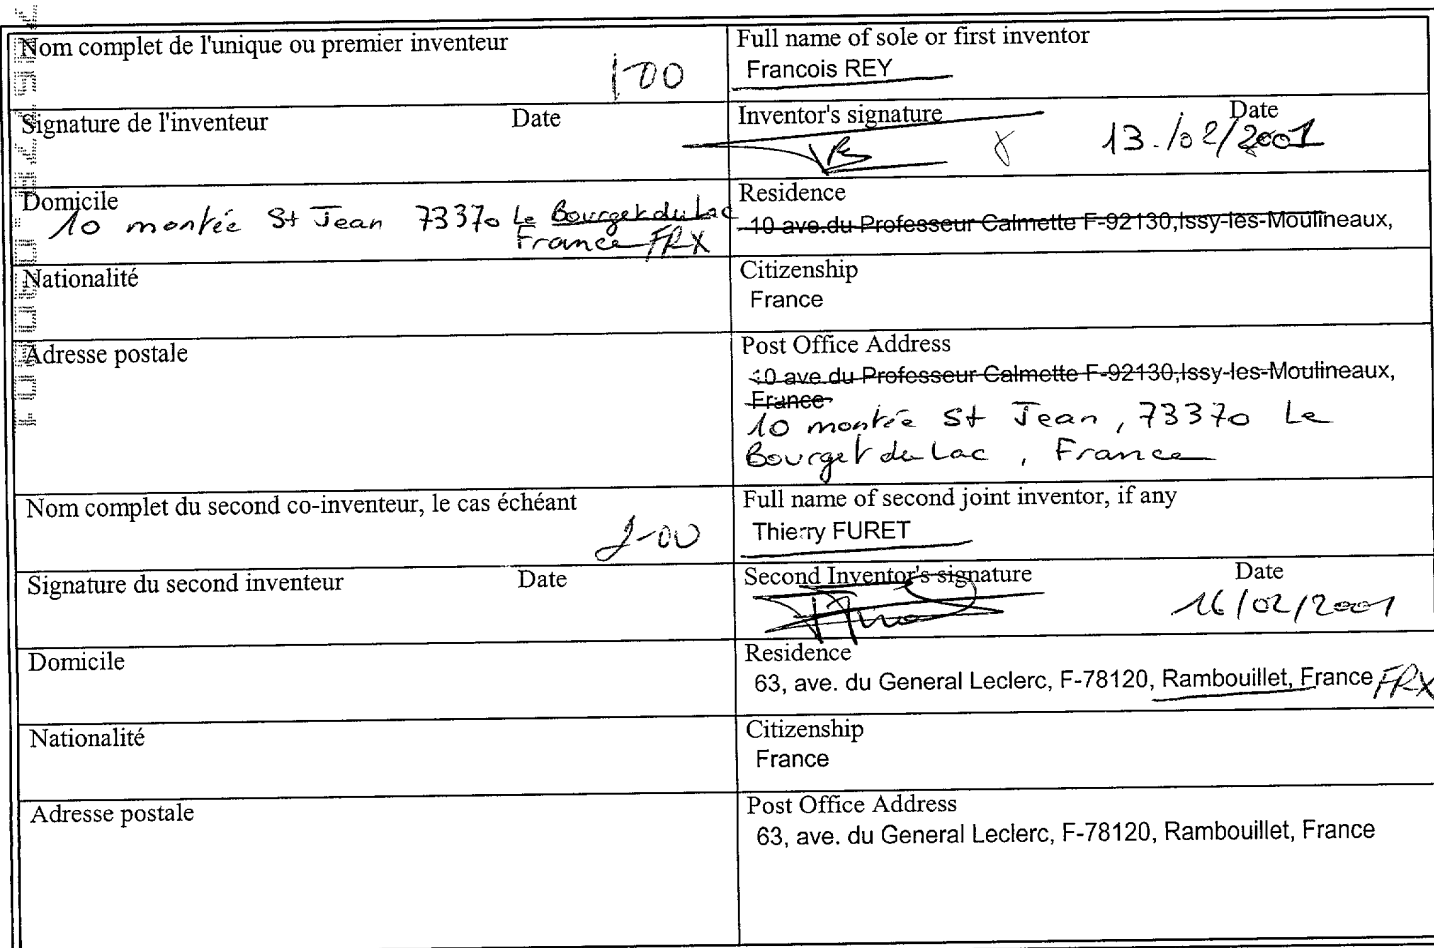 Nom complet de l'unique ou premier inventeur
1-00
Full name of sole or first inventor
Francois REY
Signature de l'inventeur Date
Inventor's signature Date
13./02/2001
Domicile
10 montée St Jean 73370 Le Bourget du Lac
France FRX
Residence
10 ave.du Professeur Calmette F-92130,Issy-les-Moulineaux,
Nationalité
Citizenship
France
Adresse postale
Post Office Address
10 ave.du Professeur Calmette F-92130,Issy-les-Moulineaux,
France
10 montée St Jean, 73370 Le
Bourget du Lac, France
Nom complet du second co-inventeur, le cas échéant
2-00
Full name of second joint inventor, if any
Thierry FURET
Signature du second inventeur Date
Second Inventor's signature Date
16/02/2001
Domicile
Residence
63, ave. du General Leclerc, F-78120, Rambouillet, France FRX
Nationalité
Citizenship
France
Adresse postale
Post Office Address
63, ave. du General Leclerc, F-78120, Rambouillet, France